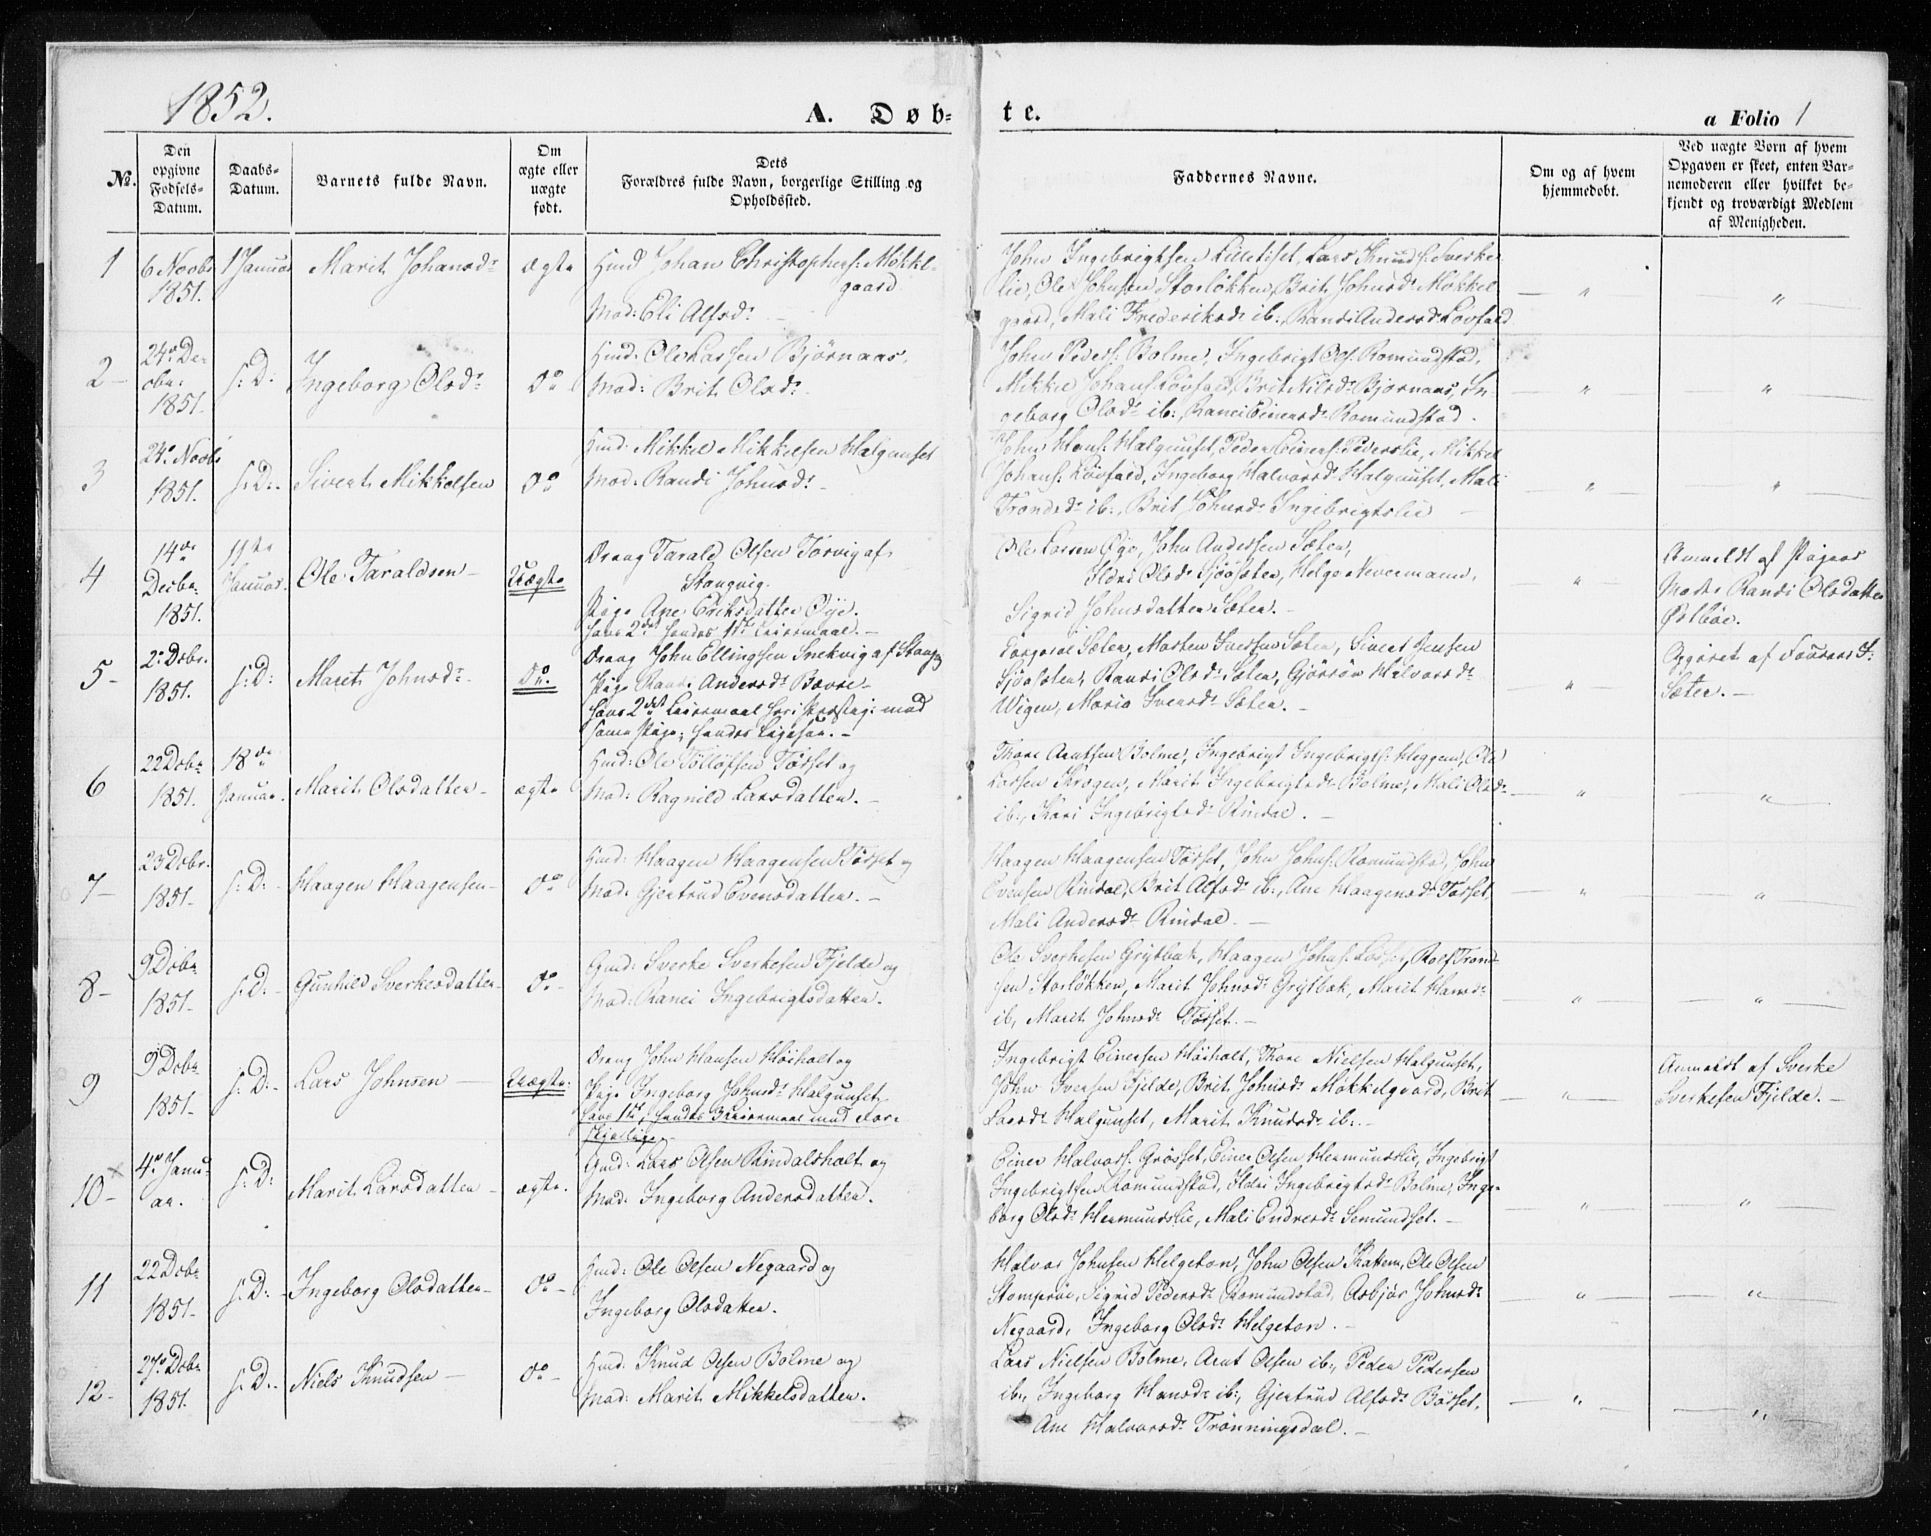 1852.
A. Døb-
te.
a Folio 1
No.
Den opgivne Fødsels-Datum.
Daabs-Datum.
Barnets fulde Navn.
Om ægte eller uægte født.
Dets Forældres fulde Navn, borgerlige Stilling og Opholdssted.
Faddernes Navne.
Om og af hvem hjemmedøbt.
Ved uægte Børn af hvem Opgaven er skeet, enten Barnemoderen eller hvilket bekjendt og troværdigt Medlem af Menigheden.
1
6 Novbr 1851.
1 Januar
Marit Johansdr
ægte
Hmd Johan Christophers: Møkkelgaard
Mod: Eli Alfsdr
John Ingebrigtsen Lilletiset, Lars Knuds: Sverke
lie, Ole Johnsen Storløkken, Brit Johnsdr Møkkel
gaard, Mali Frederiksdr ib:, Randi Andersdr Løvfald
2
24de Decbr: 1851.
s: D:
Ingeborg Olsdr
Do
Hmd: Ole Larsen Bjørnaas.
Mod: Brit Olsdr
John Peders: Bolme, Ingebrigt Ols: Romundstad,
Mikkel Johans: Løvfald, Brit Nilsdr Bjørnaas, In
geborg Olsdr ib:, Ranei Einersdr Romundstad.
3
24de Novbr 1851.
s: D:
Sivert Mikkelsen
Do
Hmd: Mikkel Mikkelsen Halgunset
Mod: Randi Johnsdr
John Hans: Halgunset, Peder Einers: Pederslie, Mikkel
Johans: Løvfald, Ingeborg Halvorsdr Halgunset, Mali
Trondsdr ib:, Brit Johnsdr Ingebrigtslie
4
14de Decbr. 1851.
11te Januar.
Ole Taraldsen
Uægte
Dreng Tarald Olsen Torvig af
Stangvig.
Pige Ane Eriksdatter Øye.
hans 2det hendes 1ste Leiermaal.
Ole Larsen Øye, John Andersen Sæter,
Ildri Olsdr Sjøsæter, Helge Nevermann,
Sigrid Johnsdatter Sæter.
Anmeldt af Pigens
Moder Randi Olsdatter
Østbøe.
5
2de Decbr. 1851.
s: D:
Marit Johnsdr
Do.
Dreng John Ellingsen Snekvig af Stangvig
Pige Randi Andersdr Bævre
hans 2det Leiermaal
Sæter, Morten Iversen Sæter, Sivert Jensen
Sjøsæter, Randi Olsdr Sæter, Gjørrøn Halvorsdr
Wigen, Maria Iversdr Sæter.
Opgivet af
Sæter.
6
22 Decbr 1851.
18de Januar.
Marit Olsdatter
ægte
Hmd: Ole Tølløfsen Tørset og
Mod: Ragnild Larsdatter.
Thore Arntsen Bolme, Ingebrigt Ingebrigts: Heggem, Ole
Larsen Krogen, Marit Ingebrigtsdr Bolme, Mali Olsdr
ib:, Kari Ingebrigtsdr Rindal.
7
23 Decbr. 1851.
s: D:
Haagen Haagensen
Do
Hmd: Haagen Haagensen Tørset og
Mod: Gjertrud Evensdatter.
Haagen Haagensen Tørset, John Johns: Romundstad, John
Evensen Rindal, Brit Alfsdr ib:, Ane Haagensdr Tørset,
Mali Andersdr Rindal.
8
9 Decbr 1851.
s: D:
Gunhild Sverkesdatter
Do
Gmd: Sverke Sverkesen Fjelde og
Mod: Ranei Ingebrigtsdatter.
Ole Sverkesen Grytbæk, Haagen Johns: Tørset, Rolf Trond
sen Storløkken, Marit Johnsdr Grytbæk, Marit Hansdr
ib, Marit Johnsdr Tørset.
9
9 Decbr 1851.
s: D:
Lars Johnsen
Uægte.
Dreng John Hansen Høiholt og
Pige Ingeborg Johnsdr Halgunset,
Hans 1ste, hendes Leiermaal med
Ingebrigt Einersen Høiholt, Thore Nielsen Halgunset,
John Iversen Fjelde, Brit Johnsdr Møkkelgaard, Brit
Larsdr Halgunset, Marit Knudsdr ib:
Anmeldt af Sverke
Sverkesen Fjelde.
10
4de Januar.
s: D:
Marit Larsdatter
ægte.
Gmd: Lars Olsen Rindalsholt og
Mod: Ingeborg Andersdatter.
Einer Halvors: Grøsset, Einer Olsen Hermundslie, Ingebrigt
Ingebrigtsen Romundstad, Ildri Ingebrigtsdr Bolme, Inge-
borg Olsdr Hermundslie, Mali Endresdr Semundset.
11
22 Decbr 1851.
s: D:
Ingeborg Olsdatter
Do
Hmd: Ole Olsen Negaard og
Ingeborg Olsdatter.
Halvor Johnsen Helgeton, John Olsen Kattem, Ole Olsen
Stomprøe, Sigrid Pedersdr Romundstad, Asbjør Johnsdr
Negaard, Ingeborg Olsdr Helgeton.
12
27de Decbr 1851.
s: D:
Niels Knudsen
Do
Hmd: Knud Olsen Bolme og
Mod: Marit Mikkelsdatter.
Lars Nielsen Bolme, Arnt Olsen ib:, Peder Pedersen
ib:, Ingeborg Hansdr ib:, Gjertrud Alfsdr Børset,
Ane Halvorsdr Trønningsdal.